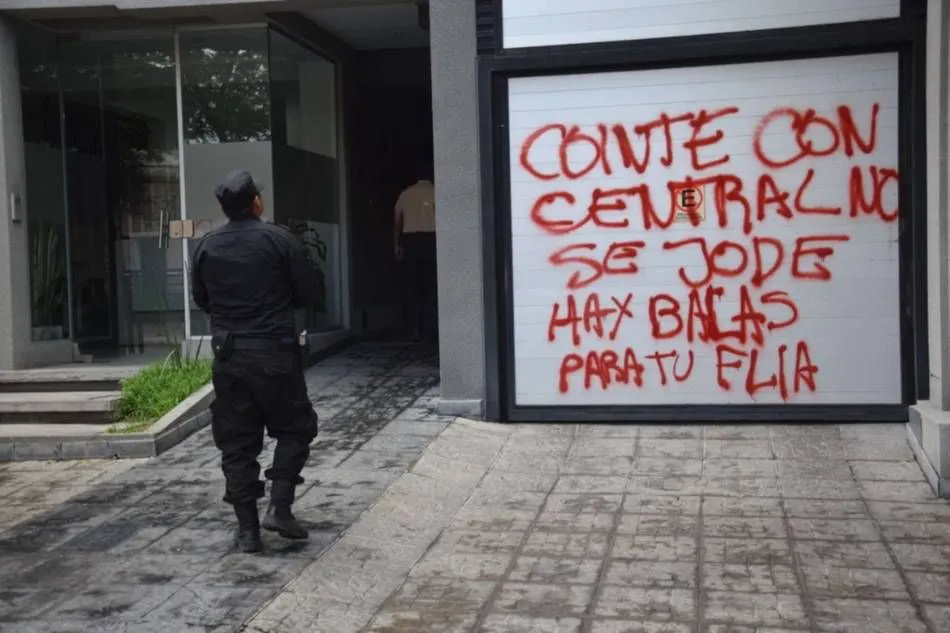 COINTE CON
CENTRAL NO
SE JODE
HAY BALAS
PARA TU FLIA
E